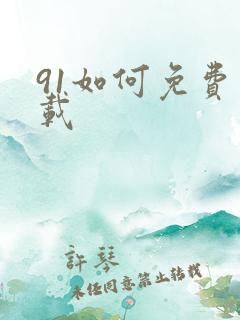 91如何免费
载
許琴
未经同意禁止转载